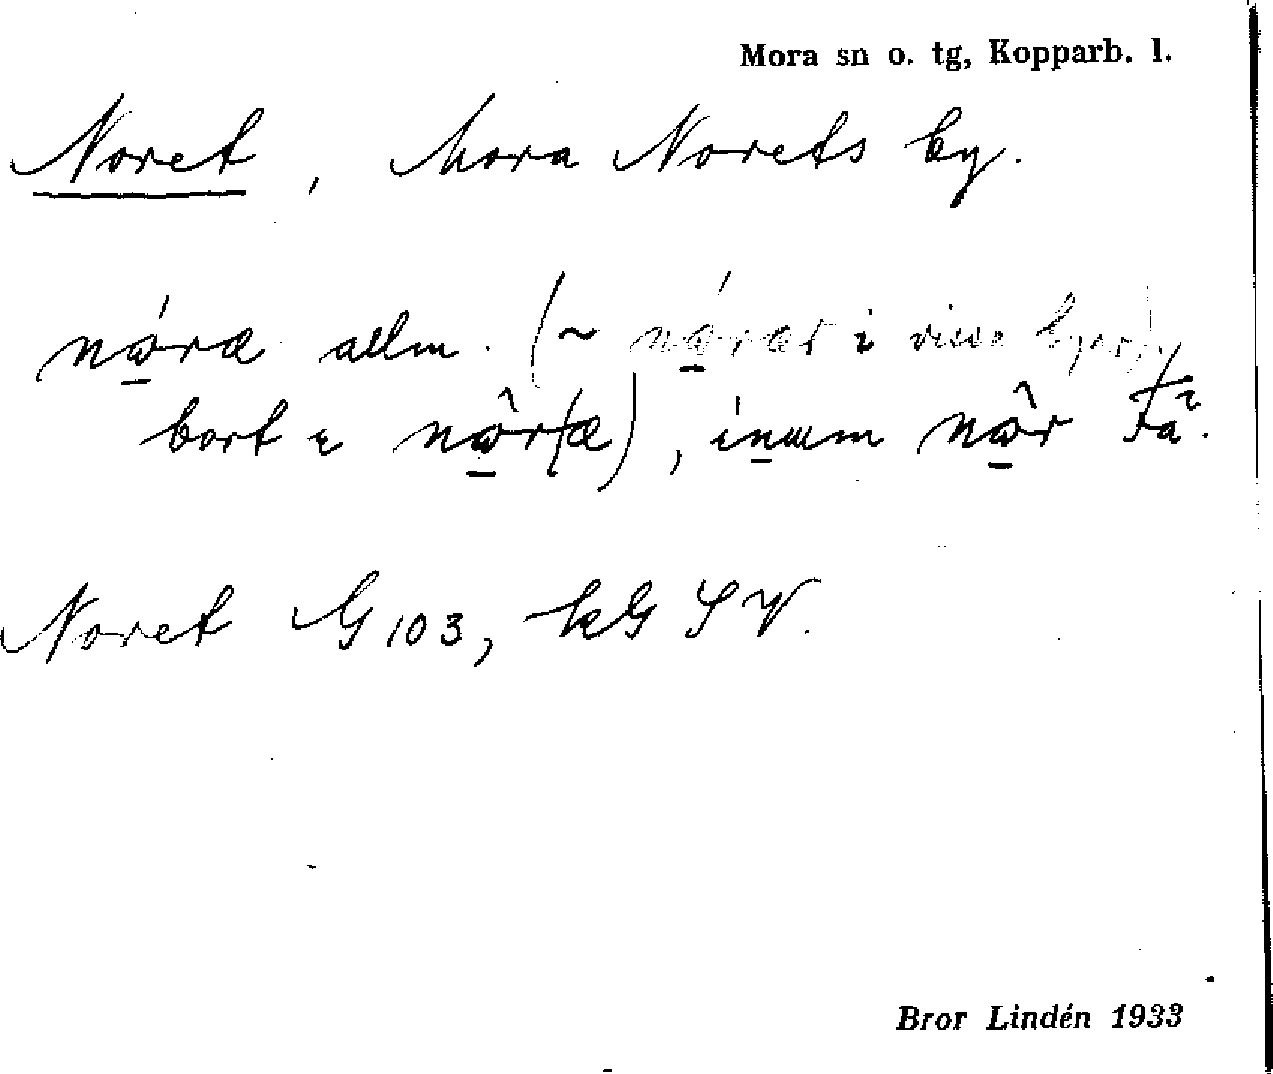 Mora sn o. tg, Kopparb. l.
Noret, Mora Norets by.
nǻ̱ræ allm. (~ i vissa byar),
bort i nω̱̂r(æ), ínum nω̱̂r
Noret G 103, kG SV.
Bror Lindén 1933